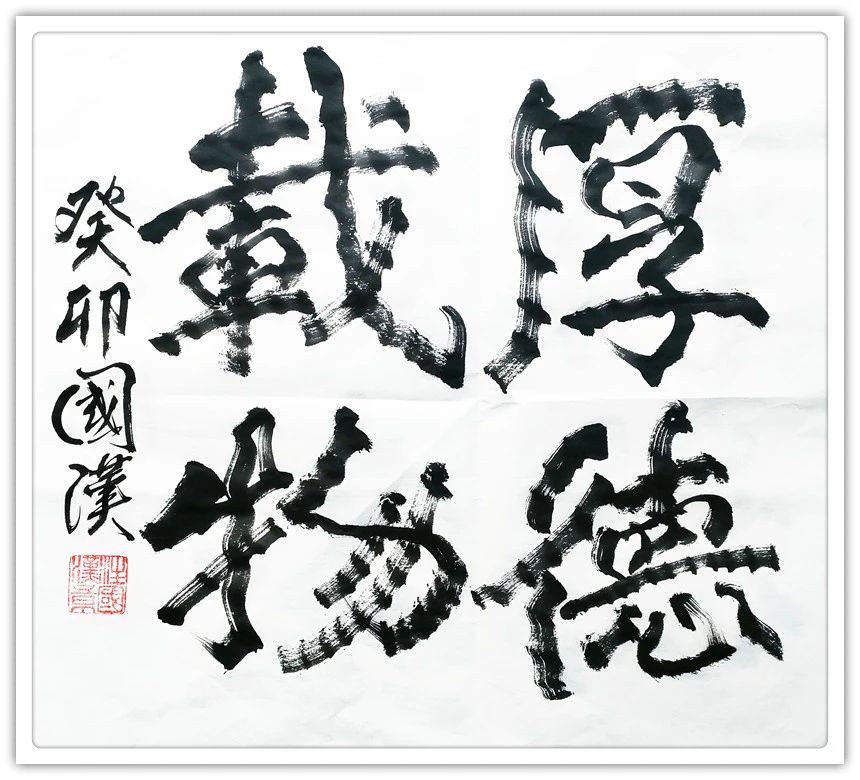 厚德
載物
癸卯國漢